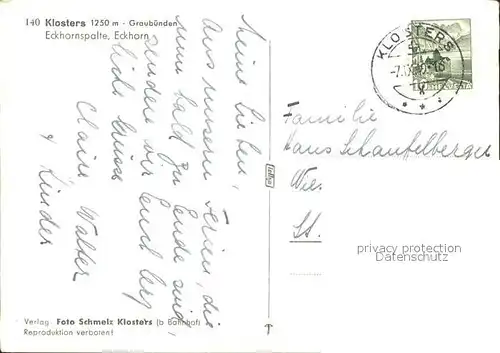 140 Klosters 1250 m - Graubünden
Eckhornspalte, Eckhorn
Meine Lieben,
Aus unsern Ferien, die
nun bald zu Ende sind,
senden wir Euch herz
liche Grüsse
Claire Walter
& Kinder
KLOSTERS
HELVETIA
Familie
Hans Schaufelberger
St.
privacy protection
Datenschutz
Verlag Foto Schmelz Klosters (b Bahnhof)
Reproduktion verboten!